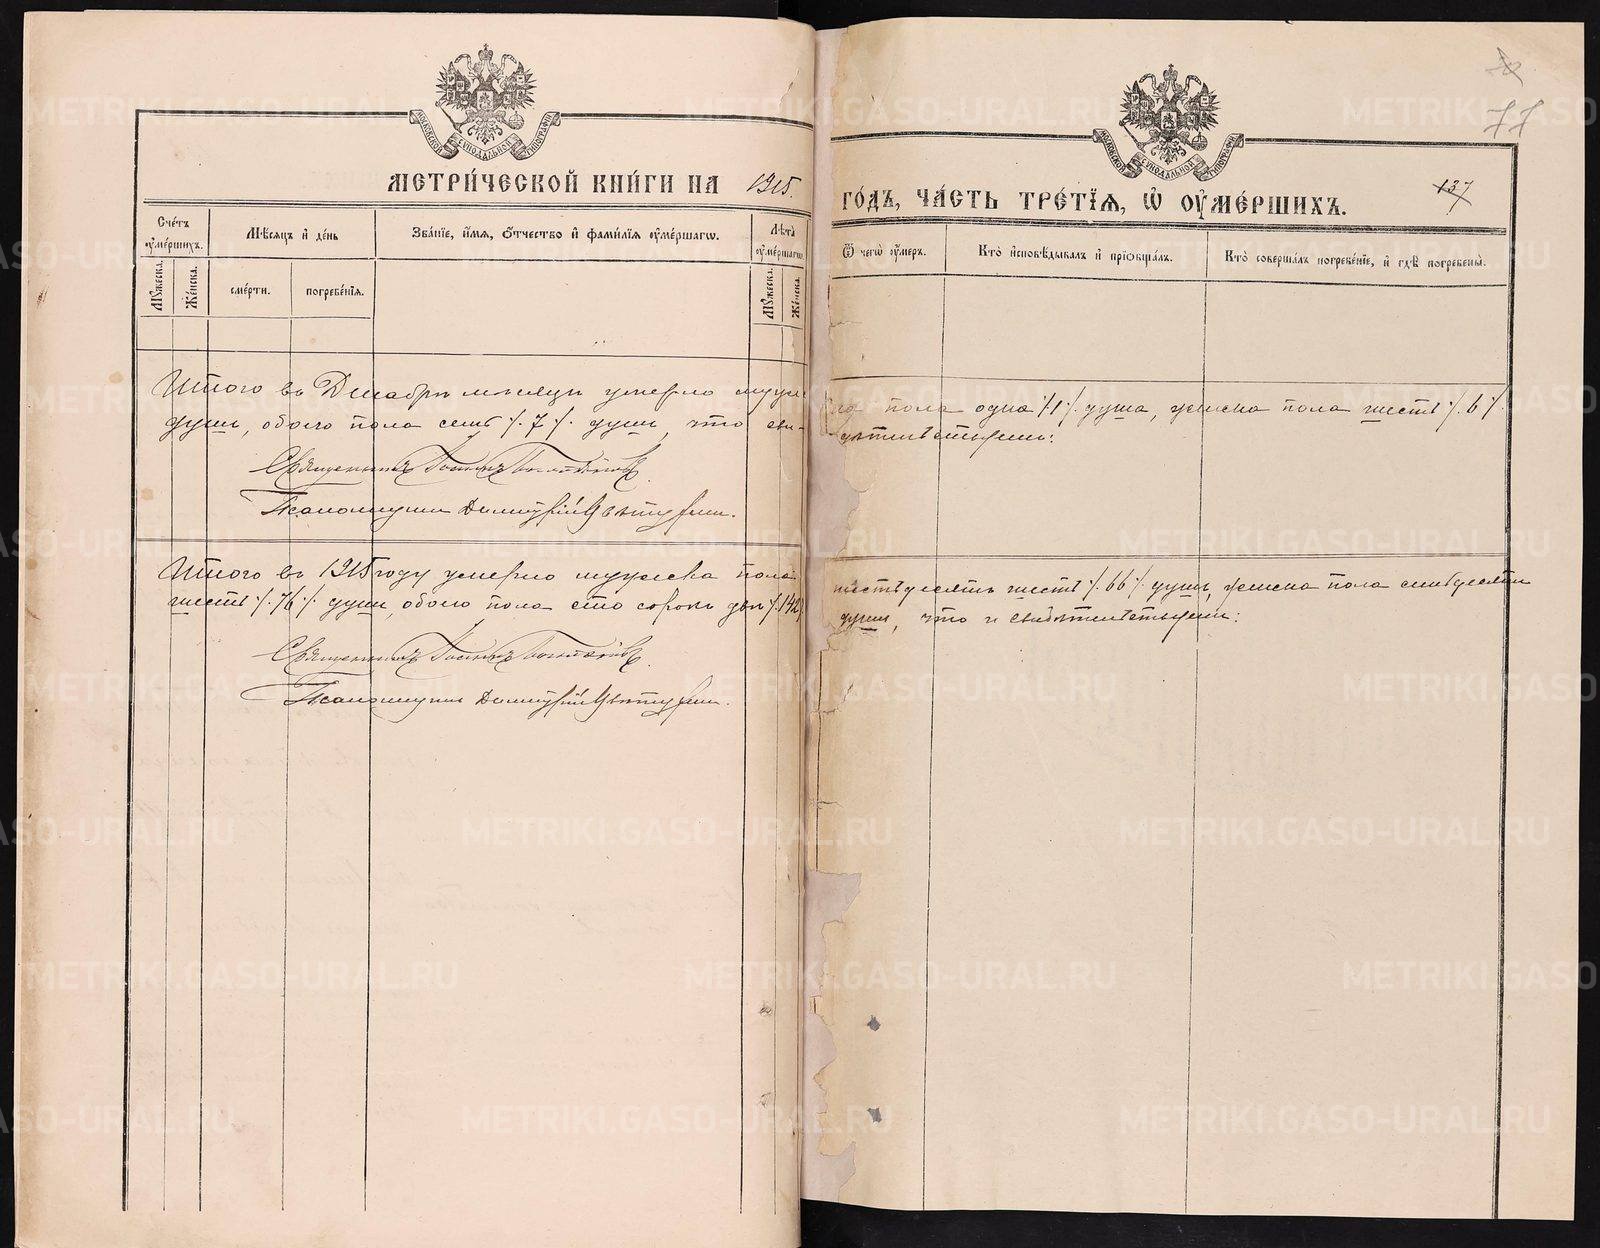 МЕТРИ́ЧЕСКОЙ КНИ́ГИ НА 1915.
ГО́ДЪ, ЧА́СТЬ ТРЕ́ТІѦ, Ѽ ОУ҆МЕ́РШИХЪ.
77
137
МОСКОВСКОЙ СѴНОДАЛЬНОЙ ТИПОГРАФІИ
МОСКОВСКОЙ СѴНОДАЛЬНОЙ ТИПОГРАФІИ
Сче́тъ оу҆ме́ршихъ.
Мꙋ́жеска.
Же́нска.
Мѣ́сѧцъ и҆ де́нь
сме́рти.
погребе́нїѧ.
Зва́нїе, и҆́мѧ, ѻ҆́тчество и҆ фами́лїѧ оу҆ме́ршагѡ.
Лѣ́та оу҆ме́ршагѡ.
Мꙋ́жеска.
Же́нска.
Ѿ чегѡ̀ оу҆́меръ.
Кто̀ и҆сповѣ́дывалъ и҆ прїѡбща́лъ.
Кто̀ соверша́лъ погребе́нїе, и҆ гдѣ̀ погребены̀.
Итого въ Декабрѣ мѣсяцѣ умерло муже
ска пола одна /1/ душа, женска пола шесть /6/
душъ, обоего пола семь /7/ душъ, что сви-
дѣтельствуемъ:
Священникъ Іоаннъ
Псаломщикъ Димитрій
Итого въ 1915 году умерло мужска пола
шестьдесятъ шесть /66/ душъ, женска пола семьдесятъ
шесть /76/ душъ, обоего пола сто сорокъ двѣ /142/
душъ, что и свидѣтельствуемъ:
Священникъ Іоаннъ
Псаломщикъ Димитрій
METRIKI.GASO-URAL.RU